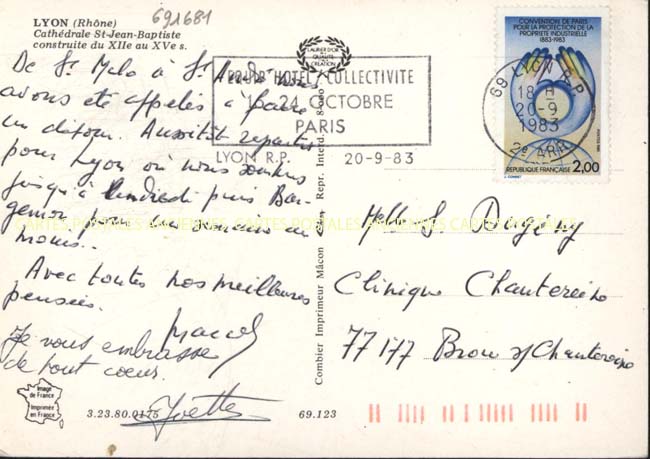 LYON (Rhône)
Cathédrale St-Jean-Baptiste
construite du XIIe au XVe s.
691681
De St Malo à St
avons été appelés à faire
un détour. Aussitôt repartis
pour Lyon où nous sommes
jusqu'à Vendredi puis
pour
Avec toutes nos meilleures
pensées.
Marcel
Je vous embrasse
de tout coeur.
Yvette
EQUIP'HOTEL COLLECTIVITE
24 OCTOBRE
PARIS
LYON R.P. 20-9-83
LAURIER D'OR
QUALITÉ
CRÉATION
69 LYON R.P.
18 H
20-9
1983
2e ARR
CONVENTION DE PARIS
POUR LA PROTECTION DE LA
PROPRIETE INDUSTRIELLE
1883-1983
REPUBLIQUE FRANÇAISE 2,00
Combier Imprimeur Mâcon
Repr. Interd.
Melle S.
Clinique Chantereine
77177 Brou s/Chantereine
CARTES POSTALES ANCIENNES CARTES POSTALES ANCIENNES CARTES POSTALES ANCIENNES
Image
de France
Imprimée
en France
3.23.80.0175
69.123